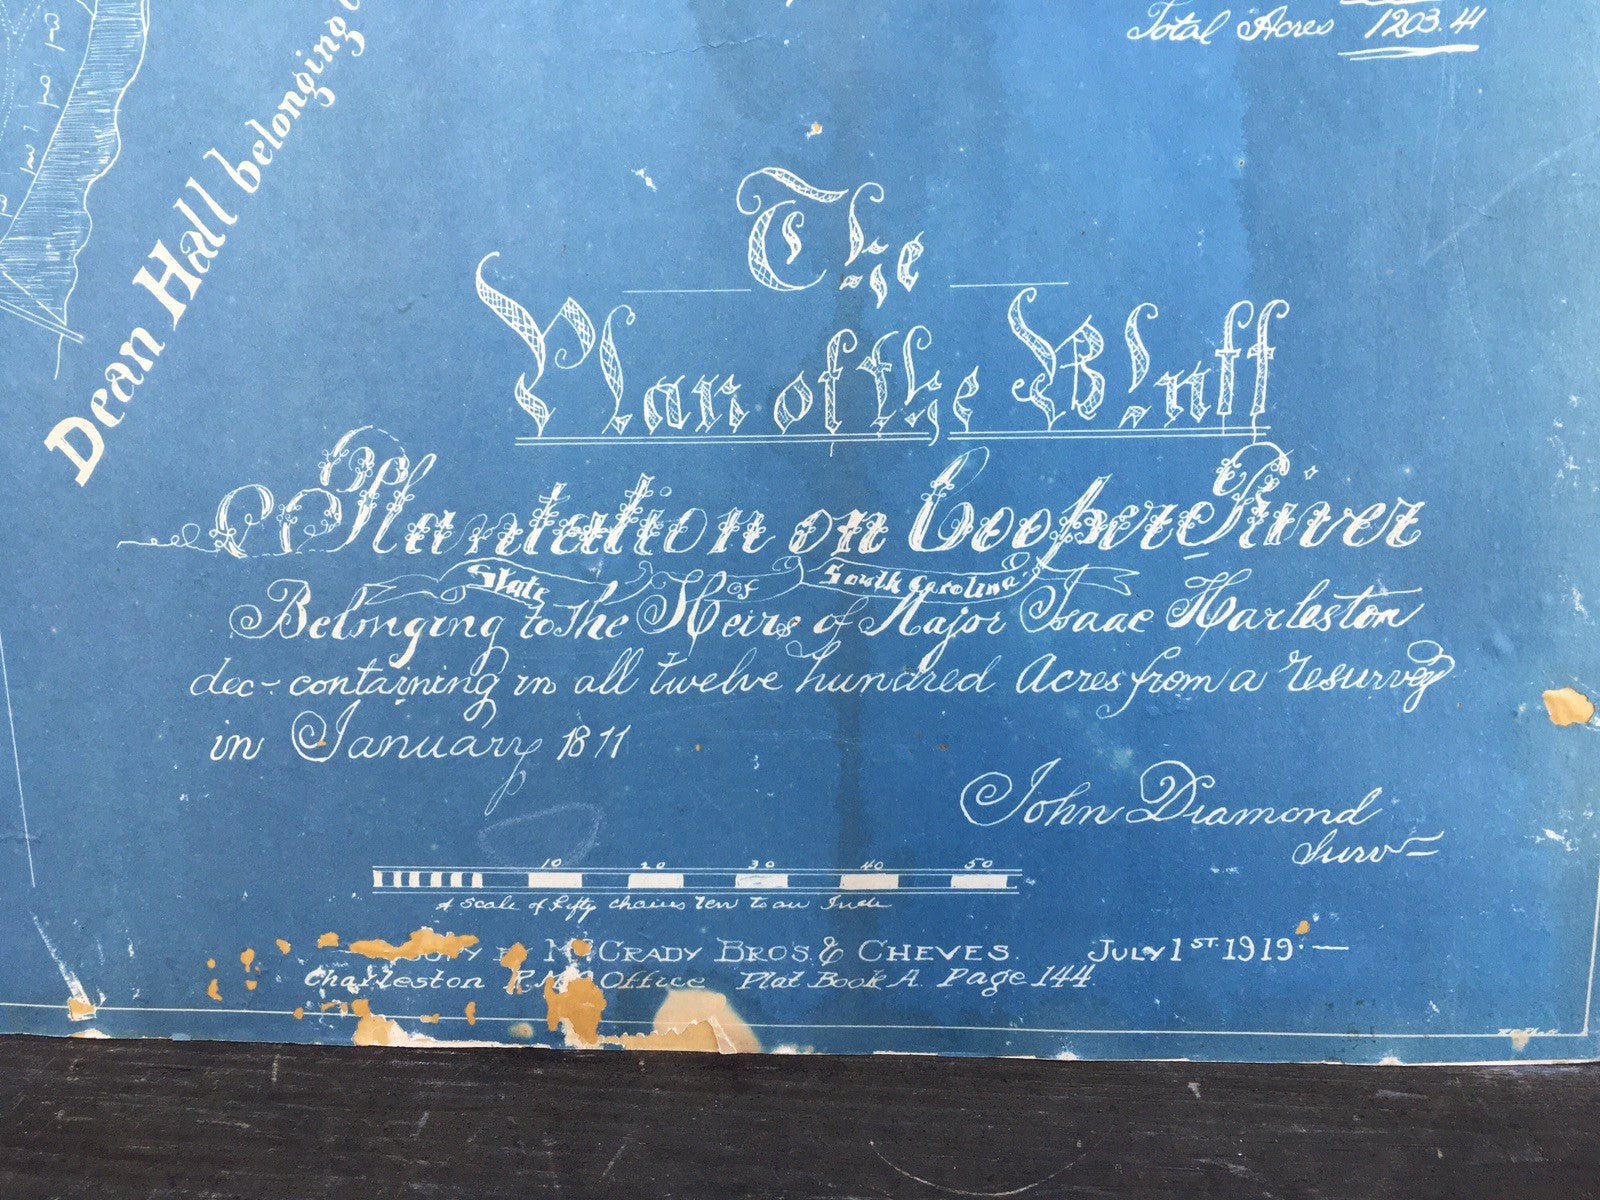 Total Acres 1203.44
Dean Hall belonging
The
Plan of the Bluff
Plantation on Cooper River
State of South Carolina
Belonging to the Heirs of Major Isaac Harleston
dec- containing in all twelve hundred Acres from a resurvey
in January 1811
John Diamond
Surv-
10 20 30 40 50
A Scale of fifty chains ten to an Inch
Copy by McCrady Bros. & Cheves. July 1st. 1919:—
Charleston R.M.C. Office Plat Book A. Page 144.